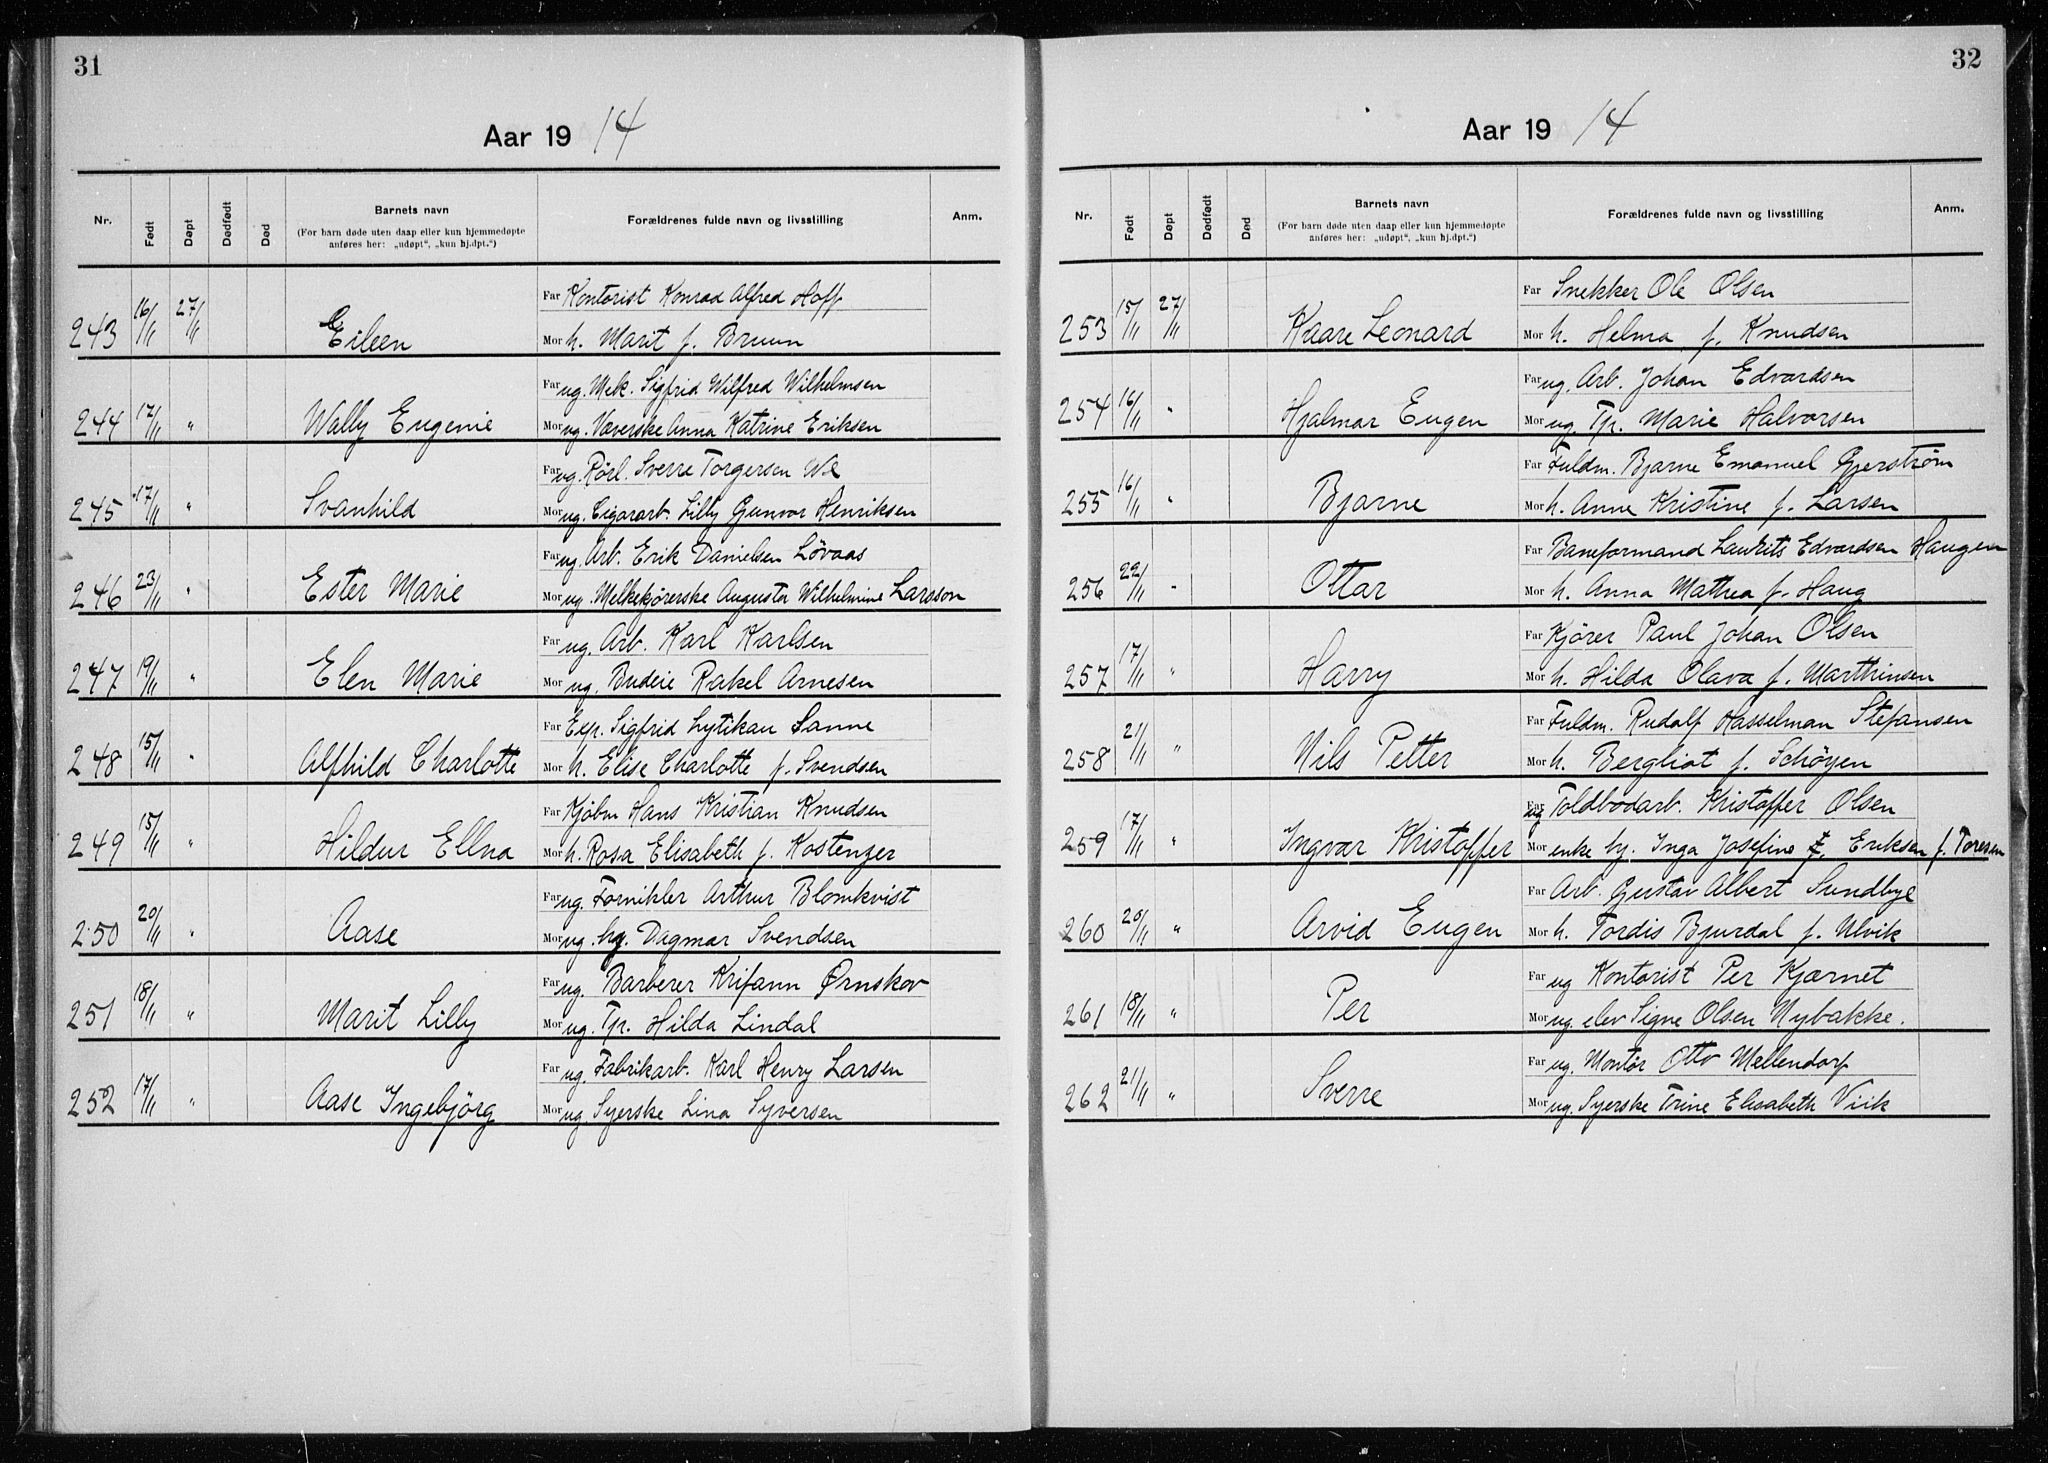 31
Aar 1914
Nr. Født Døpt Dødfødt Død Barnets navn Forældrenes fulde navn og livsstilling Anm.
(For barn døde uten daap eller kun hjemmedøpte
anføres her: „udøpt", „kun hj.dpt.")
Far Kontorist Konrad Alfred Hoff
243 16/11 27/11 Eileen Mor h. Marit f. Bruun
Far ug. Mek. Sigfrid Wilfred Wilhelmsen
244 17/11 " Wally Eugenie Mor ug. Væverske Anna Katrine Eriksen
Far ug. Rørl. Sverre Torgersen
245 17/11 " Svanhild Mor ug. Cigararb. Lilly Gunvor Henriksen
Far ug. Arb. Erik Danielsen Løvaas
246 23/11 " Ester Marie Mor ug. Melkekjørerske Augusta Wilhelmine Larsson
Far ug. Arb. Karl Karlsen
247 19/11 " Elen Marie Mor ug. Budeie Rakel Arnesen
Far Exp. Sigfrid Lytikau Sanne
248 15/11 " Alfhild Charlotte Mor h. Elise Charlotte f. Svendsen
Far Kjøbm Hans Kristian Knudsen
249 15/11 " Hildur Ellna Mor h. Rosa Elisabeth f. Kostenzer
Far ug. Fornikler Arthur Blomkvist
250 20/11 " Aase Mor ug. hg. Dagmar Svendsen
Far ug. Barberer Krifann Ørnskov
251 18/11 " Marit Lilly Mor ug. Tp. Hilda Lindal
Far ug. Fabrikarb. Karl Henry Larsen
252 17/11 " Aase Ingebjörg Mor ug. Syerske Lina Syversen
32
Aar 1914
Nr. Født Døpt Dødfødt Død Barnets navn Forældrenes fulde navn og livsstilling Anm.
(For barn døde uten daap eller kun hjemmedøpte
anføres her: „udøpt", „kun hj.dpt.")
Far Snekker Ole Olsen
253 15/11 27/11 Kaare Leonard Mor h. Helma f. Knudsen
Far ug. Arb. Johan Edvardsen
254 16/11 " Hjalmar Eugen Mor ug. Tp. Marie Halvorsen
Far Fuldm. Bjarne Emanuel Gjerstrøm
255 16/11 " Bjarne Mor h. Anne Kristine f. Larsen
Far Baneformand Laurits Edvardsen Haugen
256 22/11 " Ottar Mor h. Anna Mathea f. Haug
Far Kjører Paul Johan Olsen
257 17/11 " Harry Mor h. Hilda Olava f. Marthinsen
Far Fuldm. Rudolf Hasselman Stefansen
258 21/11 " Nils Petter Mor h. Bergliot f. Schöyen
Far ug Toldbodarb. Kristoffer Olsen
259 17/11 " Ingvar Kristoffer Mor enke hg. Inga Josefine f. Eriksen f. Toresen
Far Arb. Gustav Albert Sundbye
260 20/11 " Arvid Eugen Mor h. Tordis Bjurdal f. Ulvik
Far ug Kontorist Per Kjærnet
261 18/11 " Per Mor ug. elev Signe Olsen Nybakke.
Far ug. Montør Otto Mellendorf
262 21/11 " Sverre Mor ug. Syerske Trine Elisabeth Viik